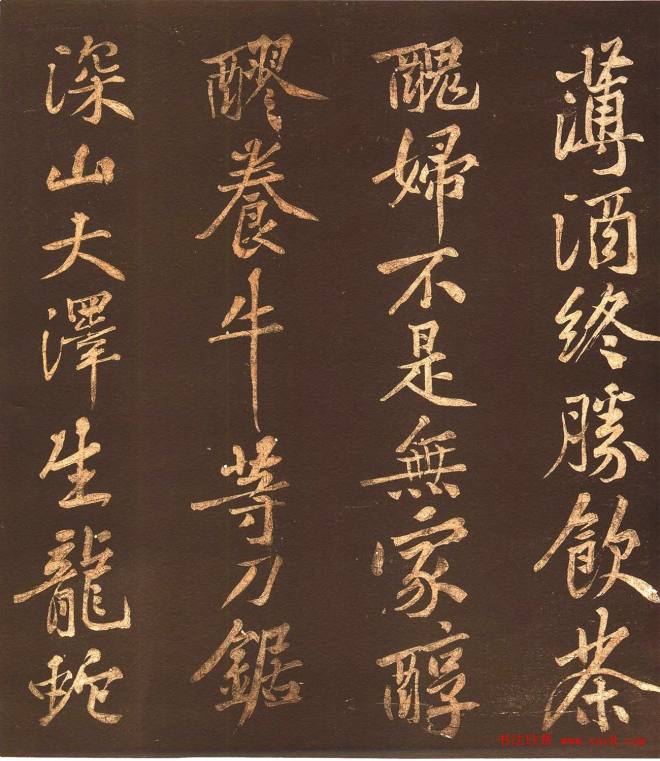 薄酒終勝飲茶
醜婦不是無家醇
醪養牛等刀鋸
深山大澤生龍蛇